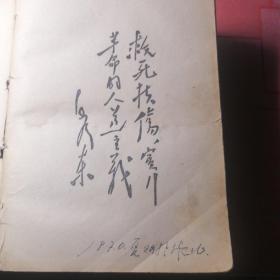 救死扶伤，实行
革命的人道主义
毛泽东
1970.夏